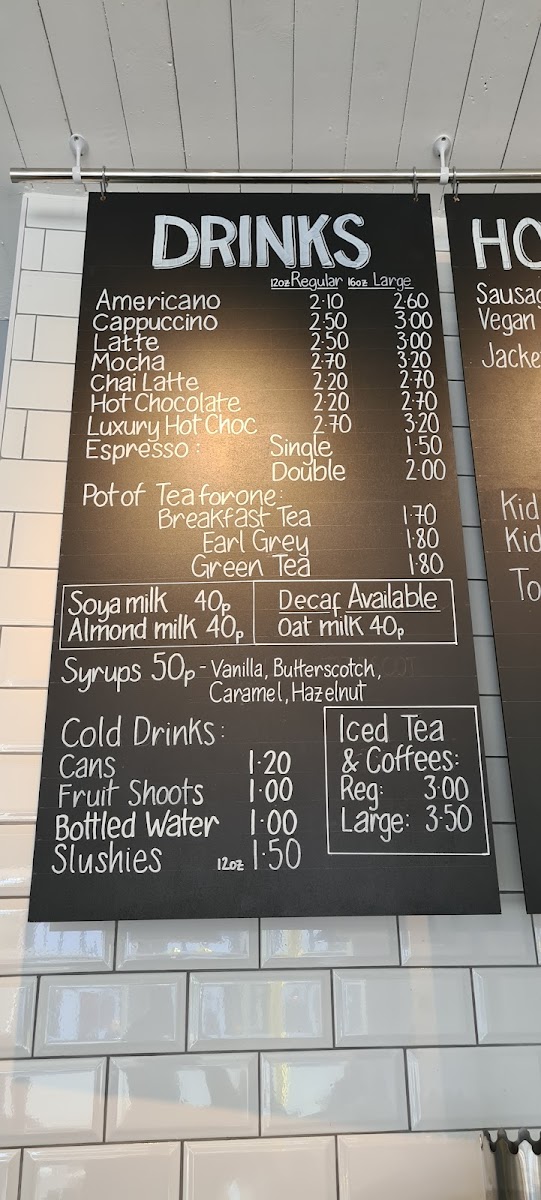 DRINKS
12oz Regular 16oz Large
Americano 2·10 2·60
Cappuccino 2·50 3·00
Latte 2·50 3·00
Mocha 2·70 3·20
Chai Latte 2·20 2·70
Hot Chocolate 2·20 2·70
Luxury Hot Choc 2·70 3·20
Espresso: Single 1·50
Double 2·00
Pot of Tea for one:
Breakfast Tea 1·70
Earl Grey 1·80
Green Tea 1·80
Soya milk 40p
Almond milk 40p
Decaf Available
Oat milk 40p
Syrups 50p - Vanilla, Butterscotch,
Caramel, Hazelnut
Cold Drinks:
Cans 1·20
Fruit Shoots 1·00
Bottled Water 1·00
Slushies 12oz 1·50
Iced Tea
& Coffees:
Reg: 3·00
Large: 3·50
HO
Sausag
Vegan
Jacke
Kid
Kid
To